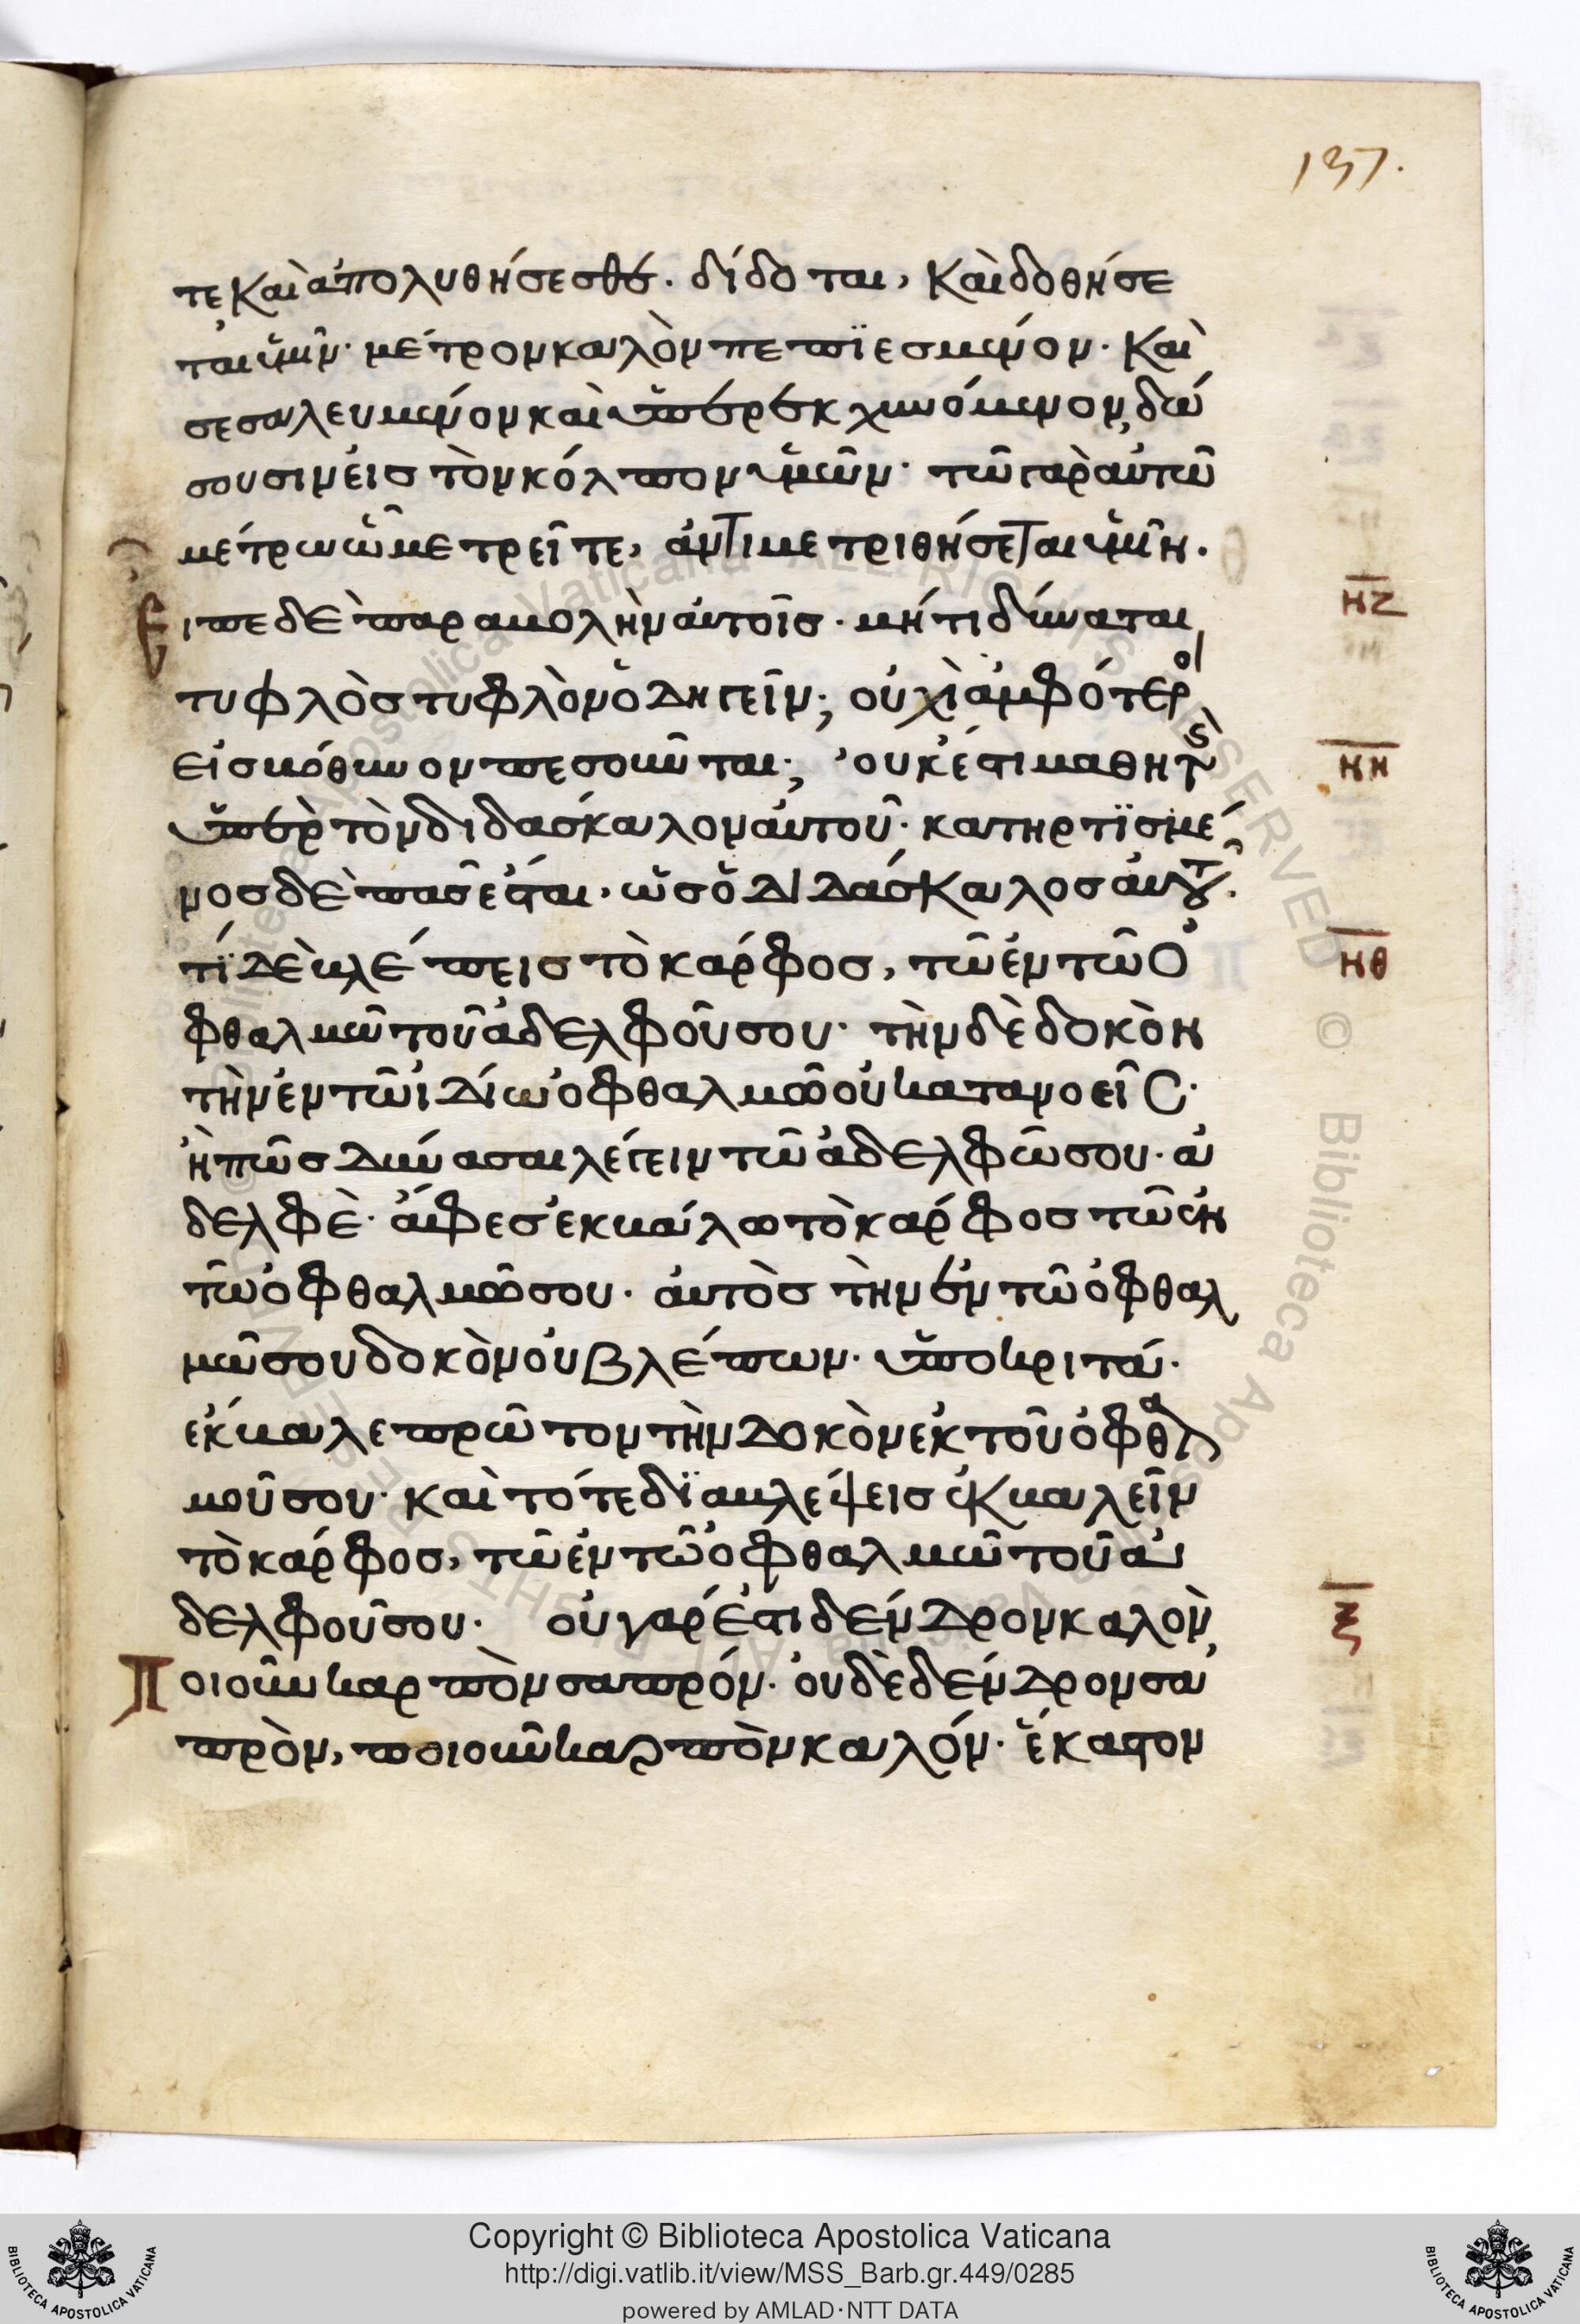 137.
τε καὶ ἀπολυθήσεσθε. δίδοται, καὶ δοθήσε
ται ὑμῖν· μέτρον καλὸν πεπϊεσμένον. καὶ
σεσαλευμένον καὶ ὑπερεκχυνόμενον, δώ
σουσιν εἰς τὸν κόλπον ὑμῶν· τῶ γὰρ αὐτῶ
μέτρω ὧ μετρεῖτε, ἀντιμετριθήσεται ὑμῖν.
Ειπε δὲ παραβολὴν αὐτοῖς· μήτι δύναται
τυφλὸς τυφλὸν ὁδηγεῖν; οὐχὶ ἀμφότεροι
εἰς βόθυνον πεσοῦνται; οὐκ έστι μαθητὴς
ὑπὲρ τὸν διδάσκαλον αὐτοῦ· κατηρτϊσμέ
νος δὲ πᾶς ἔσται, ὡς ὁ διδάσκαλος αὐτοῦ.
τί δὲ βλέπεις τὸ κάρφος, τῶ ἐν τῶ ὀ
φθαλμῶ τοῦ ἀδελφοῦ σου· τὴν δὲ δοκὸν
τὴν ἐν τῶ ἰδίω ὀφθαλμῶ οὐ κατανοεῖς·
ἢ πῶς δύνασαι λέγειν τῶ ἀδελφῶ σου· ἀ
δελφὲ· ἄφες ἐκβάλω τὸ κάρφος τῶ ἐν
τῶ ὀφθαλμῶ σου· αὐτὸς τὴν ἐν τῶ ὀφθαλ
μῶ σου δοκὸν οὐ βλέπων· ὑποκριτά·
ἐκβαλε πρῶτον τὴν δοκὸν ἐκ τοῦ ὀφθαλ
μοῦ σου· καὶ τότε δϊαβλέψεις ἐκβαλεῖν
τὸ κάρφος, τῶ ἐν τῶ ὀφθαλμῶ τοῦ ἀ
δελφοῦ σου. οὐ γάρ ἐστι δένδρον καλὸν,
Ποιοῦν καρπὸν σαπρόν· οὐδὲ δένδρον σα
πρὸν, ποιοῦν καρπὸν καλόν· ἕκαστον
νζ
νη
νθ
ξ
Copyright © Biblioteca Apostolica Vaticana
http://digi.vatlib.it/view/MSS_Barb.gr.449/0285
powered by AMLAD·NTT DATA